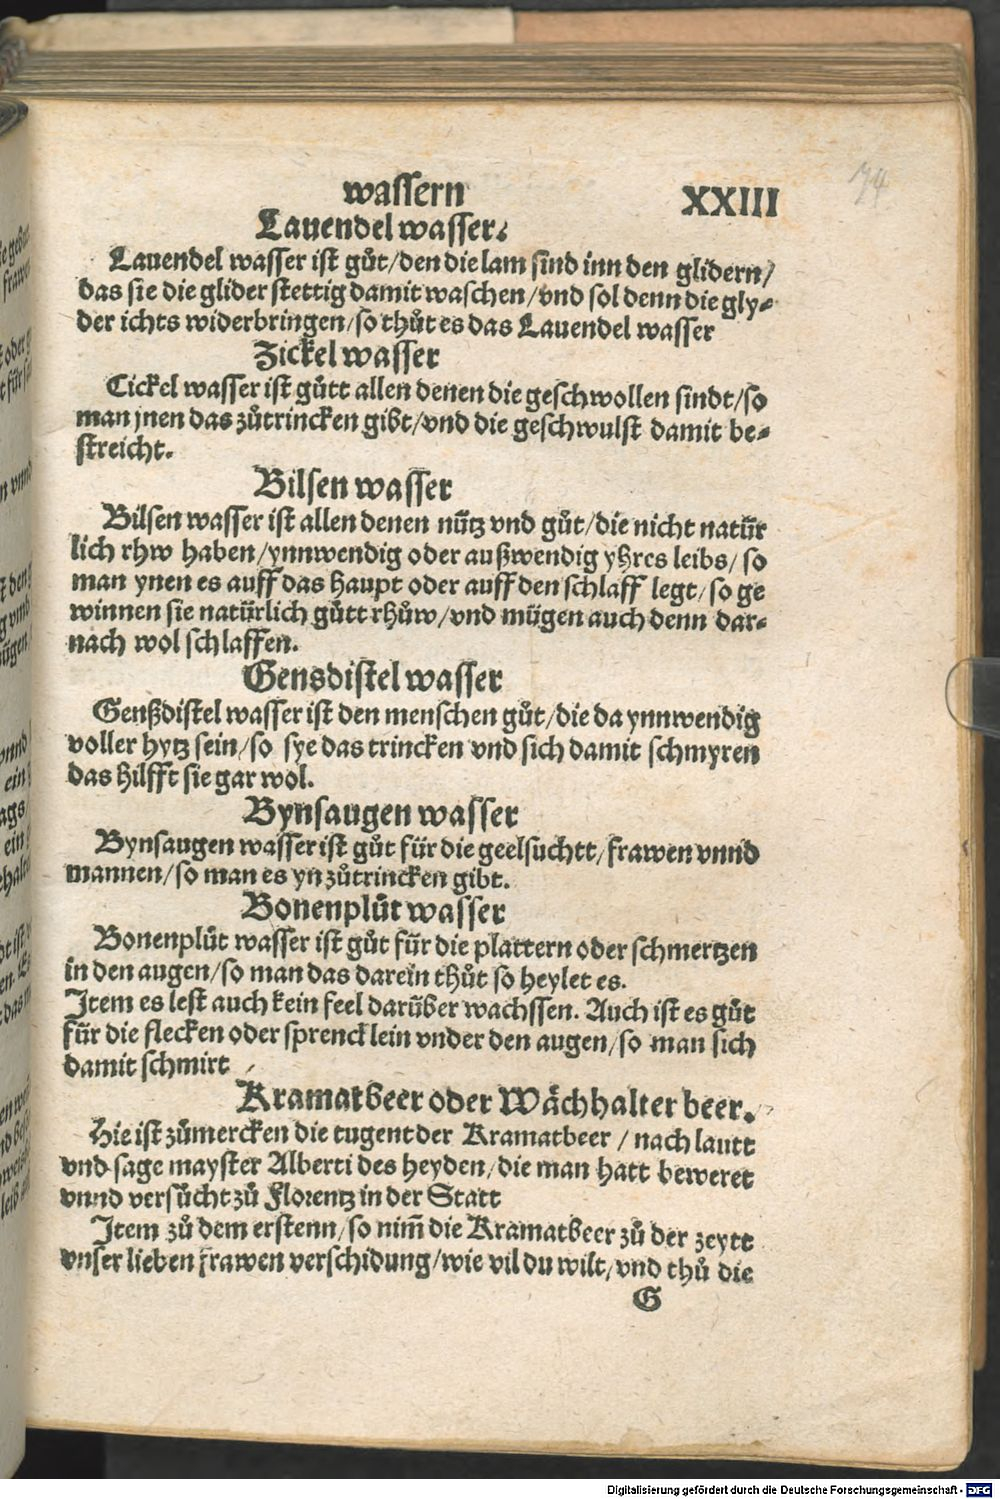 wassern XXIII
74
Lauendel wasser.
Lauendel wasser ist gůt/den die lam sind inn den glidern/
das sie die glider stettig damit waschen/vnd sol denn die gly⸗
der ichts widerbringen/so thůt es das Lauendel wasser
Zickel wasser
Cickel wasser ist gůtt allen denen die geschwollen sindt/so
man jnen das zůtrincken gibt/vnd die geschwulst damit be⸗
streicht.
Bilsen wasser
Bilsen wasser ist allen denen nütz vnd gůt/die nicht natür
lich rhw haben/ynnwendig oder außwendig yhres leibs/so
man ynen es auff das haupt oder auff den schlaff legt/so ge
winnen sie natürlich gůtt rhůw/vnd mügen auch denn dar⸗
nach wol schlaffen.
Gensdistel wasser
Genßdistel wasser ist den menschen gůt/die da ynnwendig
voller hytz sein/so sye das trincken vnd sich damit schmyren
das hilfft sie gar wol.
Bynsaugen wasser
Bynsaugen wasser ist gůt für die geelsuchtt/frawen vnnd
mannen/so man es yn zůtrincken gibt.
Bonenplůt wasser
Bonenplůt wasser ist gůt für die plattern oder schmertzen
in den augen/so man das darein thůt so heylet es.
Item es lest auch kein feel darüber wachssen. Auch ist es gůt
für die flecken oder sprencklein vnder den augen/so man sich
damit schmirt
Kramatbeer oder Wächhalter beer.
Hie ist zůmercken die tugent der Kramatbeer / nach lautt
vnd sage mayster Alberti des heyden/die man hatt beweret
vnnd versůcht zů Florentz in der Statt
Item zů dem erstenn/so nim̃ die Kramatbeer zů der zeytt
vnser lieben frawen verschidung/wie vil du wilt/vnd thů die
G
Digitalisierung gefördert durch die Deutsche Forschungsgemeinschaft - DFG